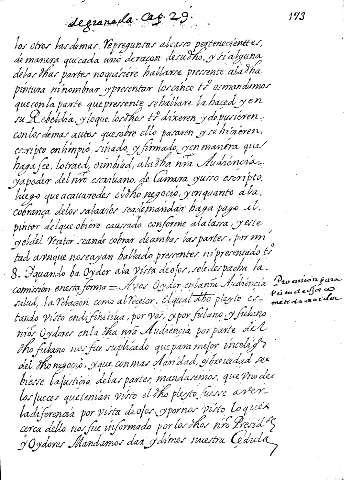 de granada. Cap. 29. 173
los otros las demas. Y e preguntas al caso pertenecientes,
de manera que cada uno de raçon de su dho, y si alguna
de las dhas partes no quisiere hallarse presente a la dha
pintura ni nombrar y presentar los cinco tos os mandamos
que con la parte que presente se hallare la haced y en
su Rebeldia, y lo que los tos dixeren y depusieren,
con los demas autos que sobre ello pasaren y se hiçieren,
escripto en limpio, sinado, y firmado, y en manera que
haga fee, lo traed, o embiad, a la dha nra Audiencia
y a poder del nro escriuano, de Camara yuso escripto,
luego que acauaredes el dho negocio, y en quanto a la
cobrança de los salarios se a de mandar haga pago el
pintor del que obiere causado conforme a la tassa y este
y el del Retar se an de cobrar de ambas las partes, por mi
tad aunque no se ayan hallado presentes ni presentado tos
8. Y quando ba Oydor a la vista de ojos, se le despacha la
comission en esta forma = A vos Oydor en la nra Audiencia
salud, la Relacion como al Receptor. El qual dho pleyto es
tando visto en difinitiua, por vos, y por fulano, y fulano
nros Oydores en la dha nra Audiencia por parte del
dho fulano nos fue suplicado que para mejor
del dho negocio, y que con mas claridad, y breuedad se
biesse la justicia de las partes, mandasemos, que vno de
los jueces que tenian visto el dho pleyto fuesse a ver
la diferencia por vista de ojos, y por nos visto lo que
cerca dello nos fue informado por los dhos nro Presidte
y Oydores Mandamos dar, y dimos nuestra Cedula
Prouision para
vista de ojos co
metida a oydor